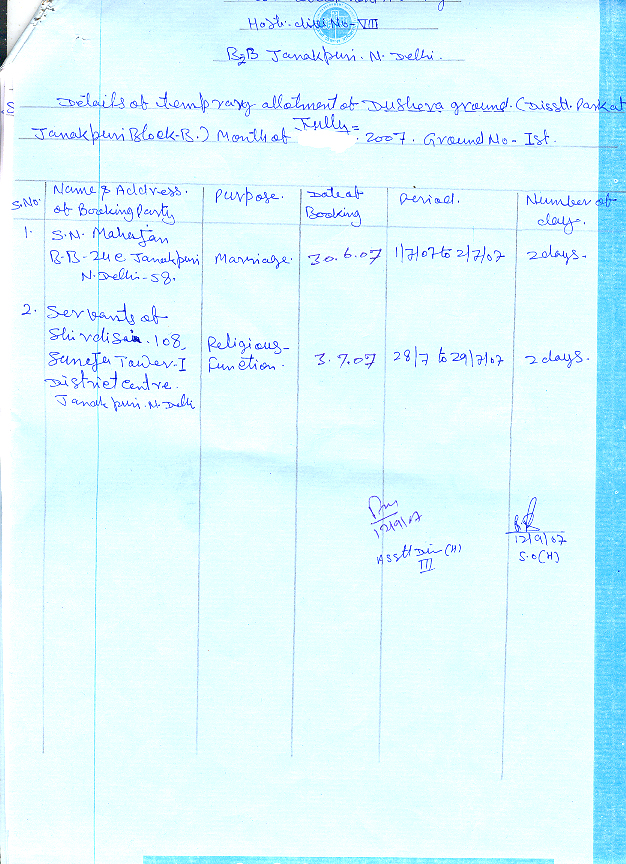 Hortc. divn No-VIII
B2B Janakpuri. N. Delhi.
Details of temprary allotment of Dushera ground. (Disstt. Park at
Janakpuri Block-B.) Month of Jully= 2007. Ground No- Ist.
S.No. Name & Address. of Booking Party Purpose. Date of Booking Period. Number of days.
1. S.N. Mahajan
B.B-24C Janakpuri Marriage. 30.6.07 1/7/07 to 2/7/07 2 days-
N. Delhi-58.
2. Servants of
Shirdi Sai. 108, Religious-
Suneja Tower-I Function. 3.7.07 28/7 to 29/7/07 2 days.
District centre.
Janakpuri. N. Delhi
12/9/07 12/9/07
Asstt Dir (H) S.O(H)
III